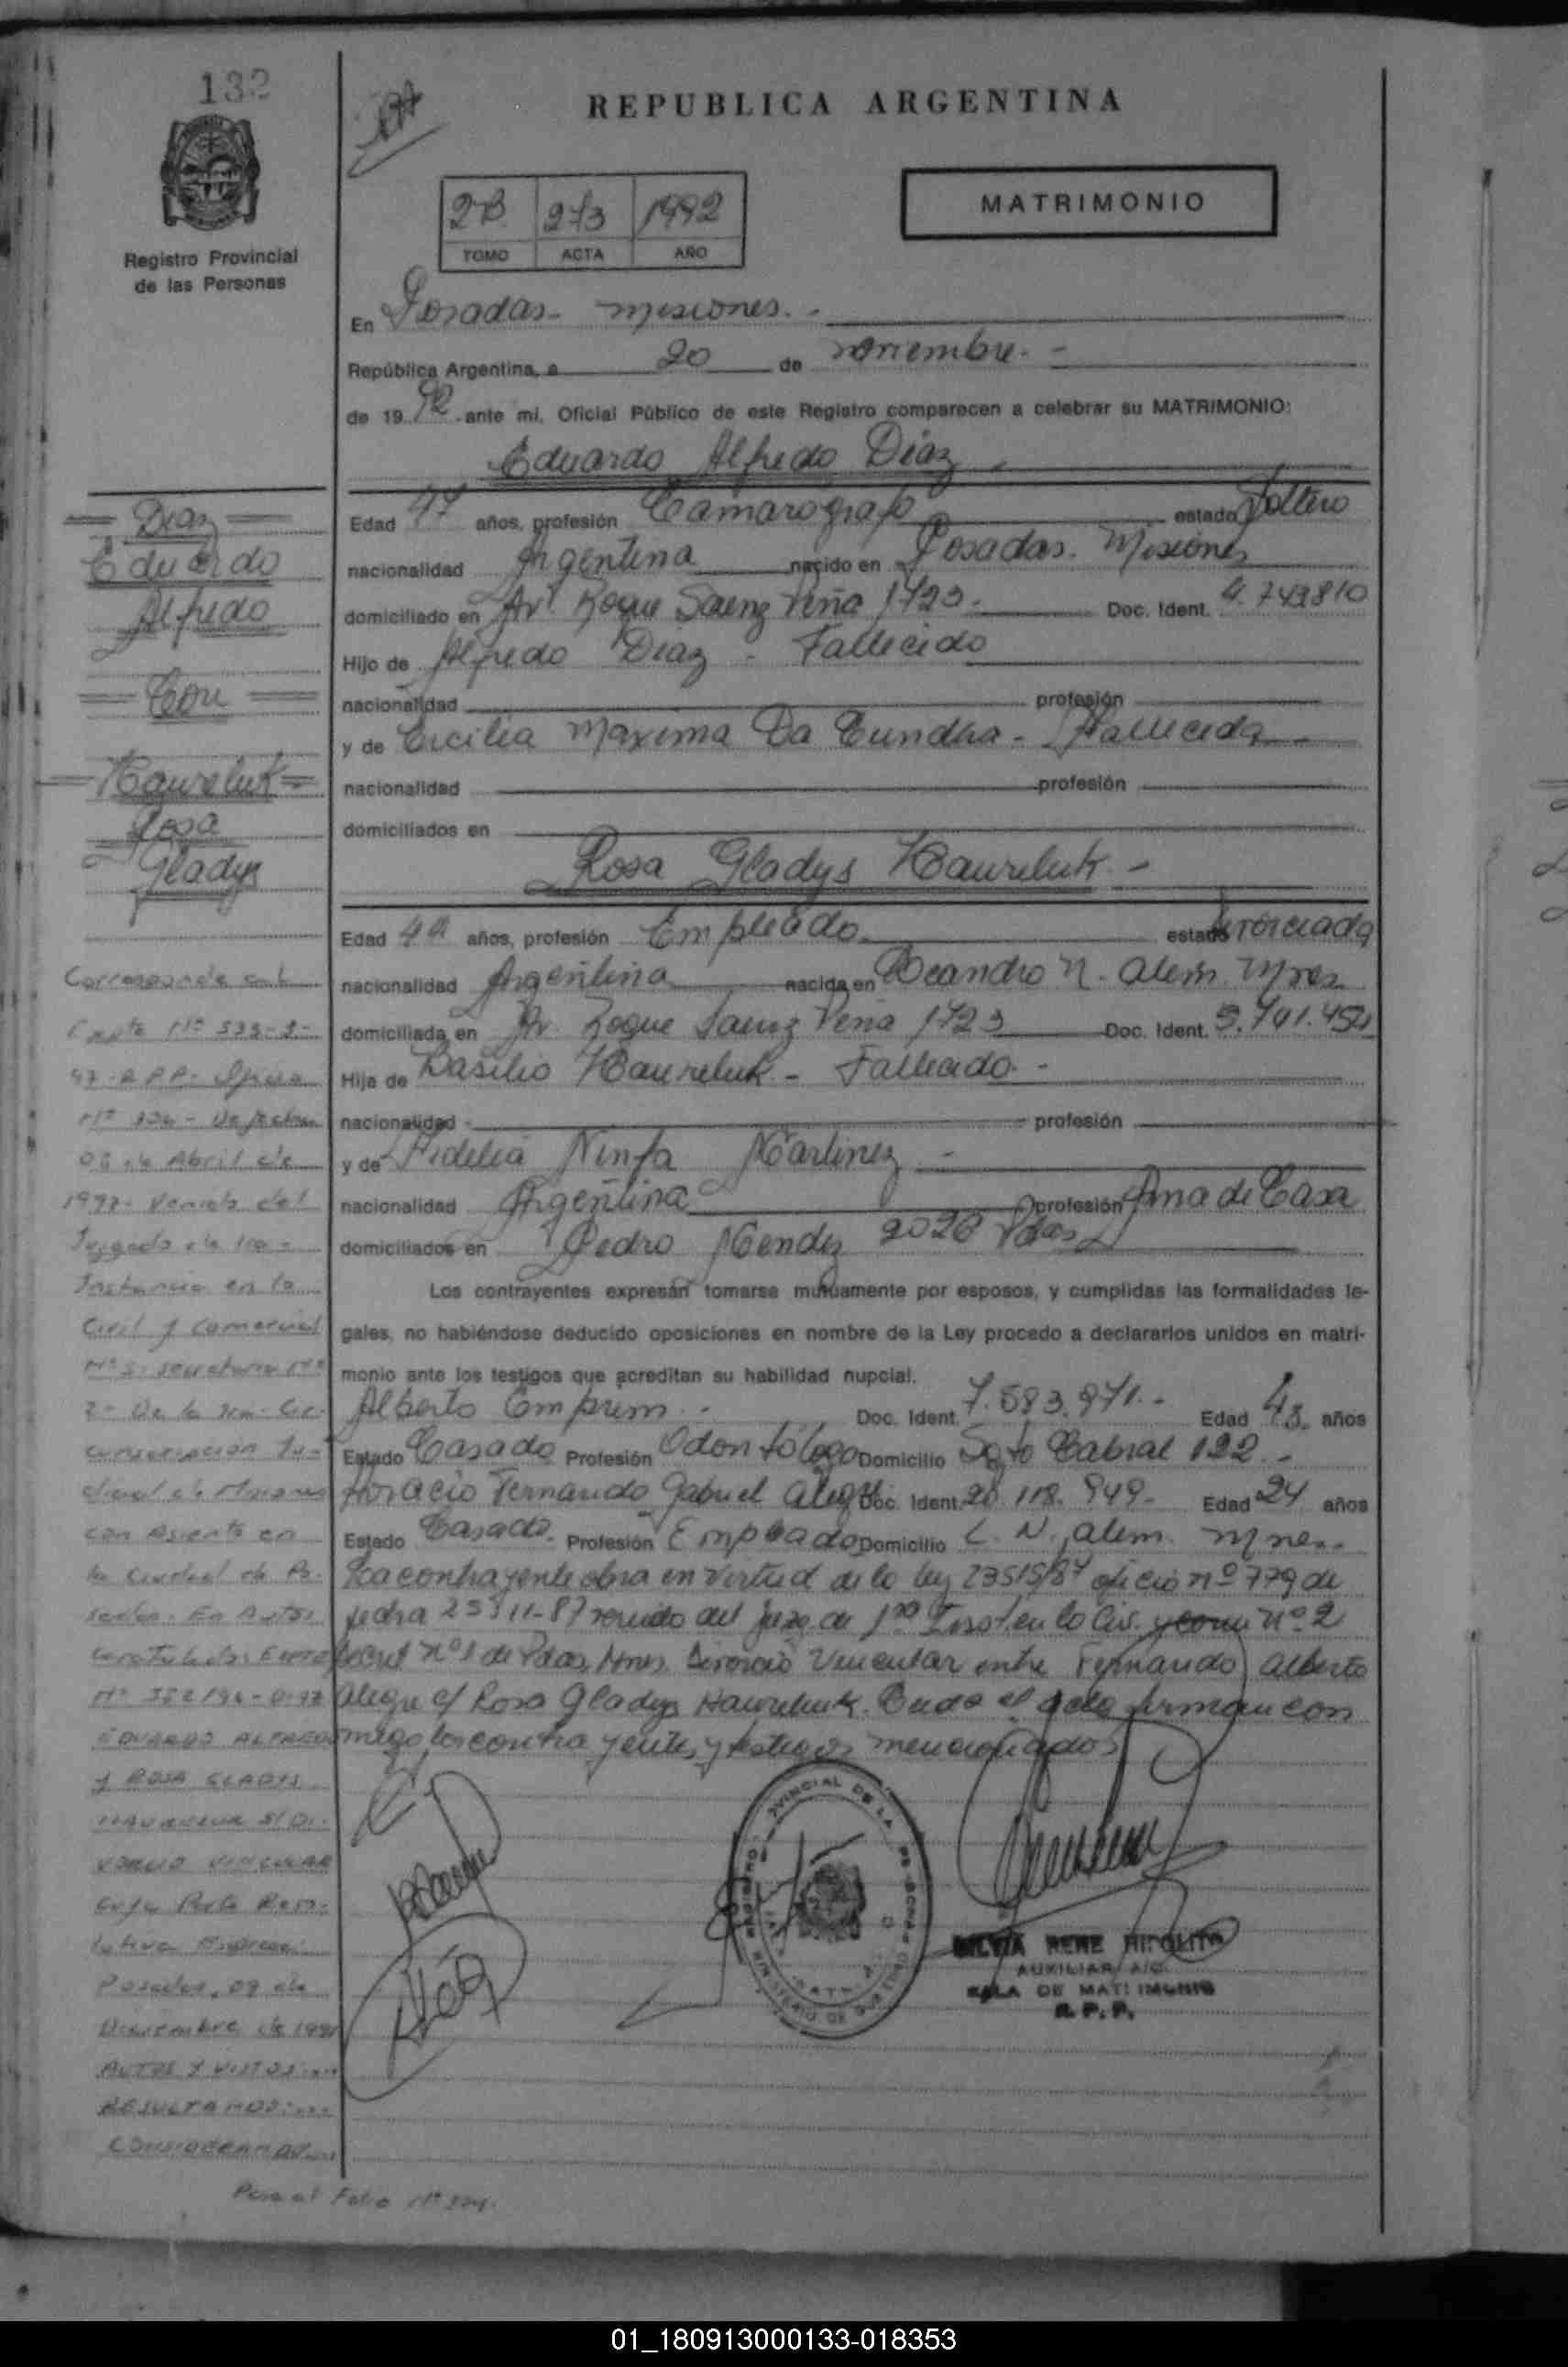 132
REPUBLICA ARGENTINA
MATRIMONIO
2B 273 1992
TOMO ACTA AÑO
Registro Provincial
de las Personas
En Posadas - misiones. -
República Argentina, a 20 de noviembre. -
de 1992 ante mi, Oficial Público de este Registro comparecen a celebrar su MATRIMONIO:
Eduardo Alfredo Diaz
Edad años, profesión Camarografo estado Soltero
nacionalidad Argentina nacido en Posadas. Misiones
domiciliado en Av. Roque Saenz Peña 1723 - Doc. Ident. 4.743810
Hijo de Alfredo Diaz - Fallecido
nacionalidad profesión
y de Cecilia Maxima Da Cundha - Fallecida
nacionalidad profesión
domiciliados en
Rosa Gladys Haureluk -
Edad años, profesión Empleado estado Divorciada
nacionalidad Argentina nacida en Leandro N. Alem Mnes
domiciliada en Av. Roque Saenz Peña 1723 Doc. Ident.
Hija de Basilio Haureluk - Fallecido -
nacionalidad profesión
y de Fidelia Ninfa Martinez -
nacionalidad Argentina profesión Ama de Casa
domiciliados en Pedro Mendez 2026 Pdas
Los contrayentes expresan tomarse mutuamente por esposos, y cumplidas las formalidades le-
gales, no habiéndose deducido oposiciones en nombre de la Ley procedo a declararlos unidos en matri-
monio ante los testigos que acreditan su habilidad nupcial.
Alberto Emprim. - Doc. Ident. 7.583.971. - Edad 43 años
Estado Casado Profesión Odontólogo Domicilio Sgto Cabral 122 -
Horacio Fernando Gabriel Alegre Doc. Ident. 20.118.949 - Edad 24 años
Estado Casado - Profesión Empleado Domicilio L. N. Alem. Mnes.
La contrayente obra en virtud de la ley 23515/87 oficio nº 779 de
fecha 23-11-87 venido del juzg. de 1ra Inst. en lo Civ. y com nº 2
secret nº 1 de Pdas, Mnes. Divorcio Vincular entre Fernando Alberto
Alegre c/ Rosa Gladys Haureluk. Leida el acta firman con
migo los contrayentes y testigos mencionados
SILVIA RENE HIPOLITO
AUXILIAR A/C
SALA DE MATRIMONIO
R. P. P.
Diaz
Eduardo
Alfredo
Con
Haureluk
Rosa
Gladys
Corresponde
Nº
Oficio
Nº De fecha
de Abril de
1997 - Venido del
Juzgado de 1ra -
Instancia en lo
Civil y Comercial
secretaria Nº
2 - De la 1ra - Cir-
cunscripcion Ju-
dicial de Misiones
con Asiento en
la Ciudad de Po-
sadas. En Autos
Caratulados: Expte
Nº
EDUARDO ALFREDO
y ROSA GLADYS
HAURELUK S/ DI-
VORCIO VINCULAR
Cuya Parte Reso-
lutiva Expresa:
Posadas, 09 de
Diciembre de
AUTOS Y VISTOS:...
RESULTANDO:...
CONSIDERANDO...
Pasa al Folio Nº
01_180913000133-018353